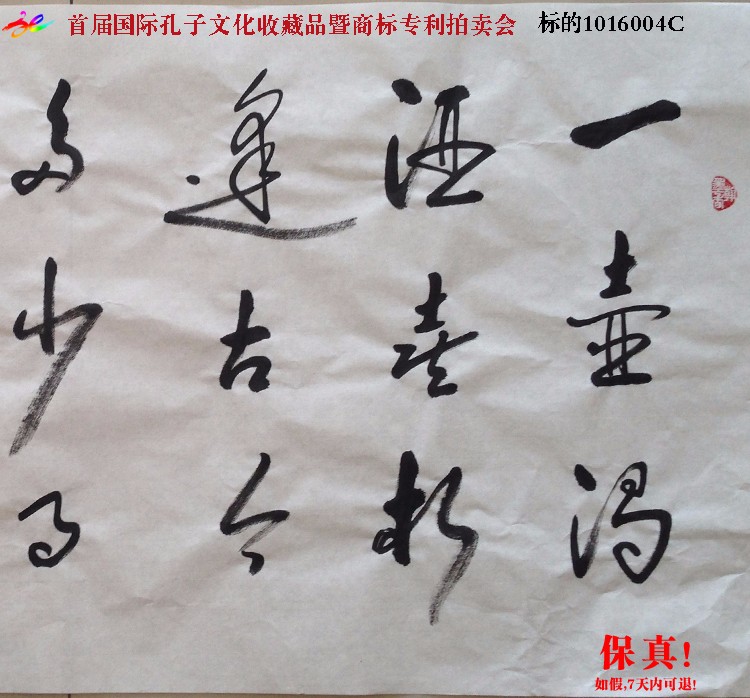 首届国际孔子文化收藏品暨商标专利拍卖会 标的1016004C
一壶濁
酒喜相
逢古今
多少事
保真!
如假,7天内可退!